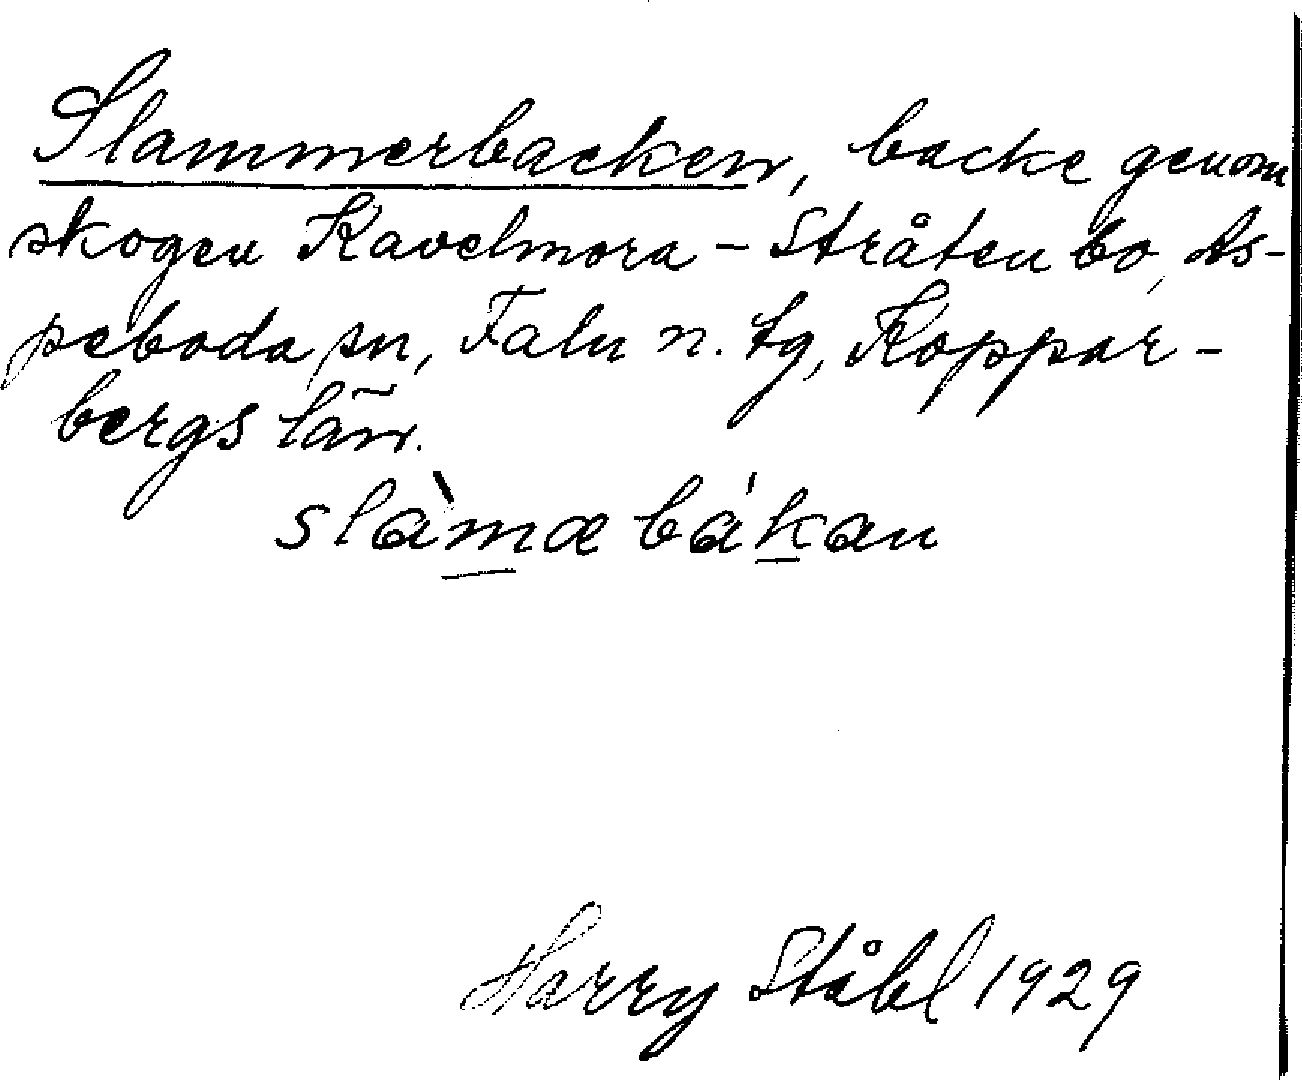 Slammerbacken, backe genom
skogen Kavelmora - Stråtenbo, As-
peboda sn, Falu n. tg, Koppar-
bergs län.
slàmæbákan
Harry Ståhl 1929